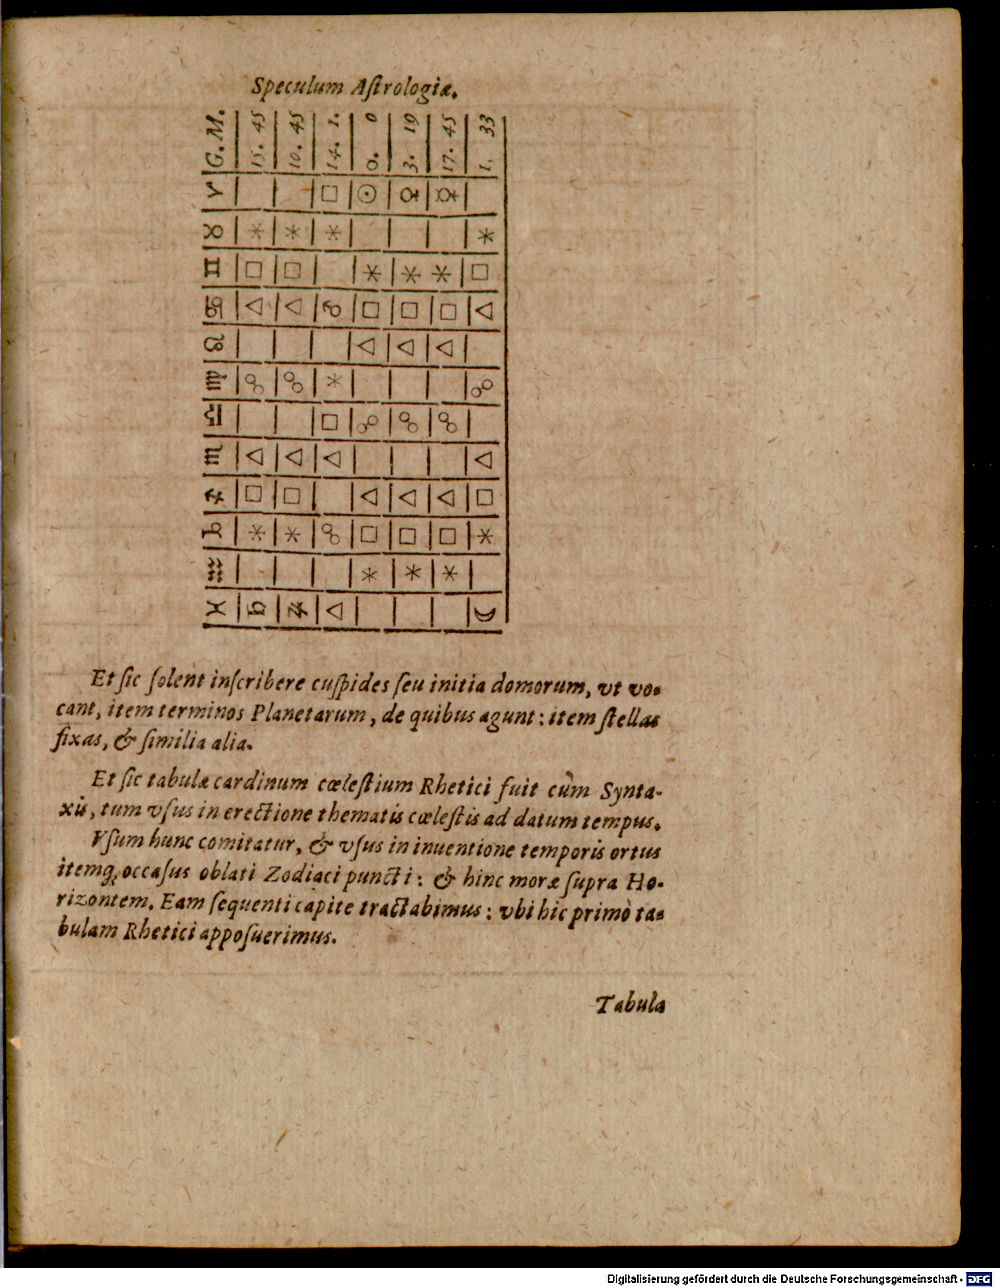 Speculum Aſtrologiæ.
♓ ♒ ♑ ♐ ♏ ♎ ♍ ♌ ♋ ♊ ♉ ♈ G. M.
♄ ⚹ □ △ ☍ △ □ ⚹ 15. 45
♃ ⚹ □ △ ☍ △ □ ⚹ 10. 45
△ ☍ △ □ ⚹ ♂ ⚹ □ 14. 1.
⚹ □ △ ☍ △ □ ⚹ ☉ 0. 0
⚹ □ △ ☍ △ □ ⚹ ♀ 3. 19
⚹ □ △ ☍ △ □ ⚹ ☿ 17. 45
☽ ⚹ □ △ ☍ △ □ ⚹ 1. 33
Et ſic ſolent inſcribere cuſpides ſeu initia domorum, vt vo-
cant, item terminos Planetarum, de quibus agunt: item ſtellas
fixas, & ſimilia alia.
Et ſic tabulæ cardinum cœleſtium Rhetici fuit cùm Synta-
xis, tum vſus in erectione thematis cœleſtis ad datum tempus.
Vſum hunc comitatur, & vſus in inuentione temporis ortus
itemq; occaſus oblati Zodiaci puncti: & hinc moræ ſupra Ho-
rizontem. Eam ſequenti capite tractabimus: vbi hic primò ta-
bulam Rhetici appoſuerimus.
Tabula
Digitalisierung gefördert durch die Deutsche Forschungsgemeinschaft - DFG